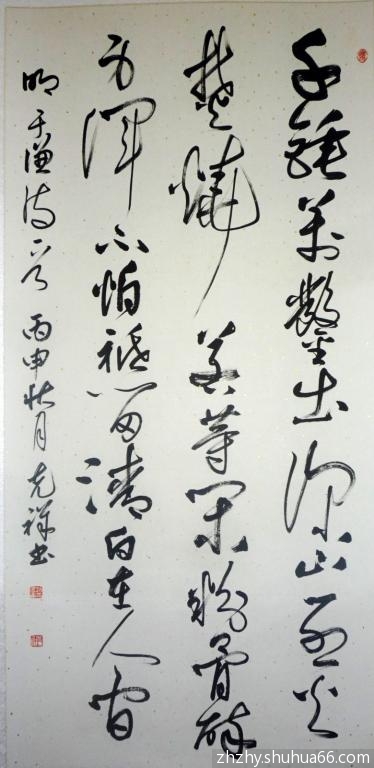 千錘萬鑿出深山烈火
焚燒若等閑粉骨碎
身渾不怕留清白在人間
明于谦诗一首 丙申秋月克祥书
zhzhy.shuhua66.com